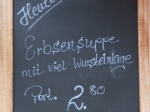 Heute
Erbsensuppe
mit viel Wursteinlage
Port. 2.80